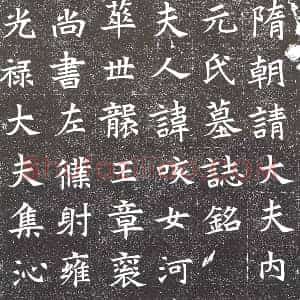 隋朝請大夫内
元氏墓誌銘
夫人諱咳女河
華世襲王章
尚書左僕射雍
光禄大夫集沁